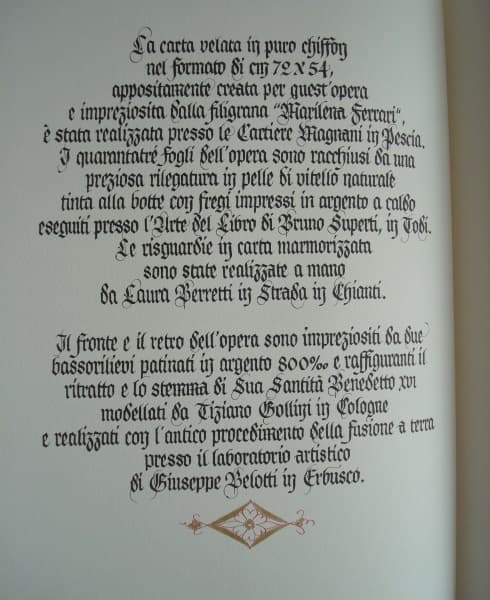 La carta velata in puro chiffon
nel formato di cm 72 x 54,
appositamente creata per quest'opera
e impreziosita dalla filigrana "Marilena Ferrari",
è stata realizzata presso le Cartiere Magnani in Pescia.
I quarantatré fogli dell'opera sono racchiusi da una
preziosa rilegatura in pelle di vitello naturale
tinta alla botte con fregi impressi in argento a caldo
eseguiti presso l'Arte del Libro di Bruno Superti, in Todi.
Le risguardie in carta marmorizzata
sono state realizzate a mano
da Laura Berretti in Strada in Chianti.
Il fronte e il retro dell'opera sono impreziositi da due
bassorilievi patinati in argento 800‰ e raffiguranti il
ritratto e lo stemma di Sua Santità Benedetto XVI
modellati da Tiziano Gollini in Cologne
e realizzati con l'antico procedimento della fusione a terra
presso il laboratorio artistico
di Giuseppe Belotti in Erbusco.